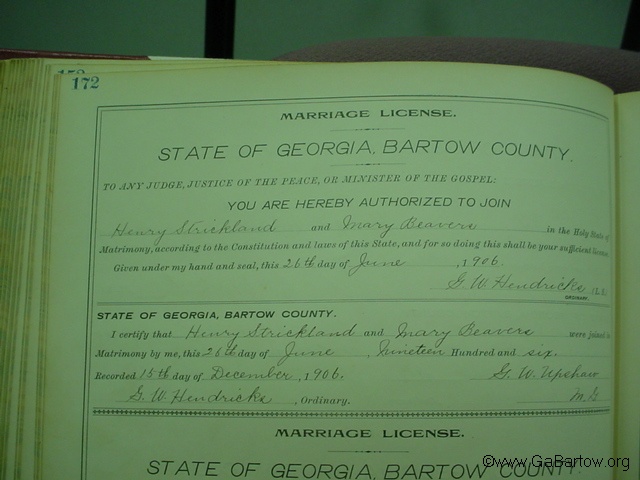 172
MARRIAGE LICENSE.
STATE OF GEORGIA, BARTOW COUNTY.
TO ANY JUDGE, JUSTICE OF THE PEACE, OR MINISTER OF THE GOSPEL:
YOU ARE HEREBY AUTHORIZED TO JOIN
Henry Strickland and Mary Beavers in the Holy State of
Matrimony, according to the Constitution and laws of this State, and for so doing this shall be your sufficient license.
Given under my hand and seal, this 26th day of June, 1906.
G. W. Hendricks
ORDINARY.
STATE OF GEORGIA, BARTOW COUNTY.
I certify that Henry Strickland and Mary Beavers were joined in
Matrimony by me, this 26th day of June Nineteen Hundred and six.
Recorded 15th day of December, 1906. G. W. Upshaw
G. W. Hendricks, Ordinary. M.G
MARRIAGE LICENSE.
STATE OF GEORGIA, BARTOW COUNTY.
©www.GaBartow.org